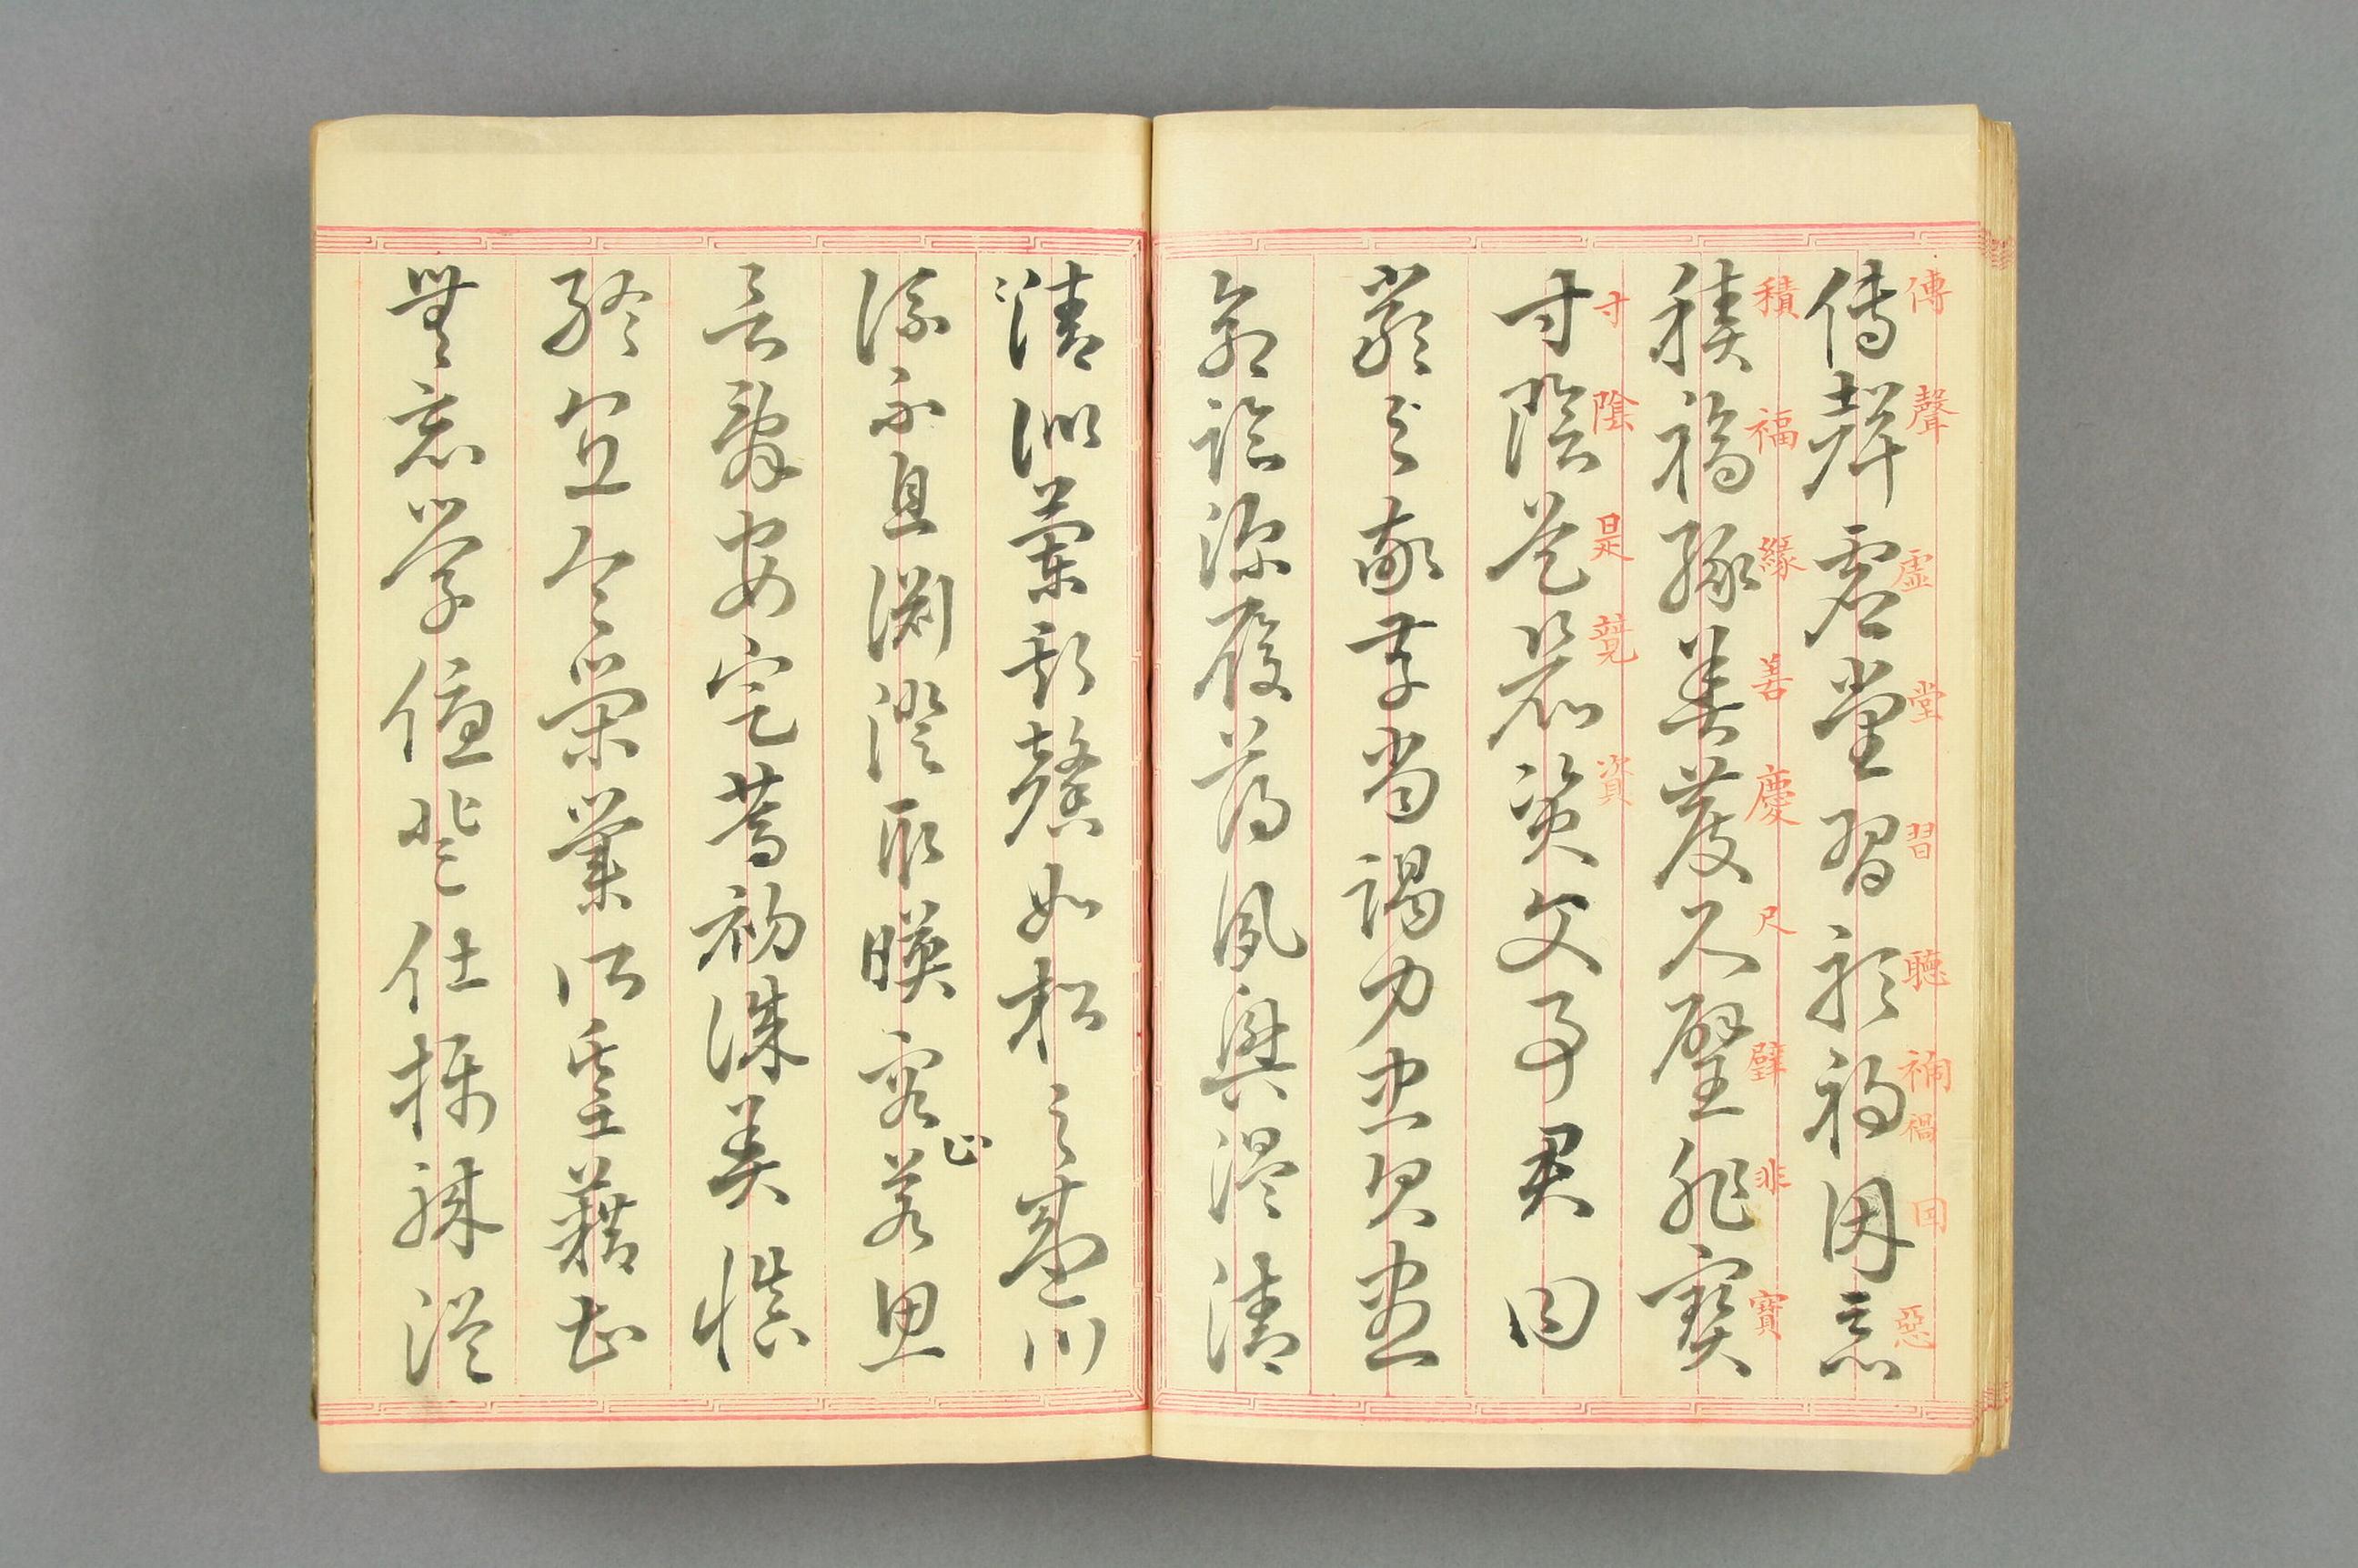 傳聲虛堂習聽禍因惡
傳聲虛堂習聽禍因惡
積福緣善慶尺璧非寶
積福緣善慶尺璧非寶
寸陰是競資
寸陰是競資父事君曰
嚴與敬孝當竭力忠則盡
命臨深履薄夙興溫清
清似蘭斯馨如松之盛川
流不息淵澄取暎容止若思
言辭安定篤初誠美慎
終宜令榮業所基藉甚
無竟學優登仕攝職從